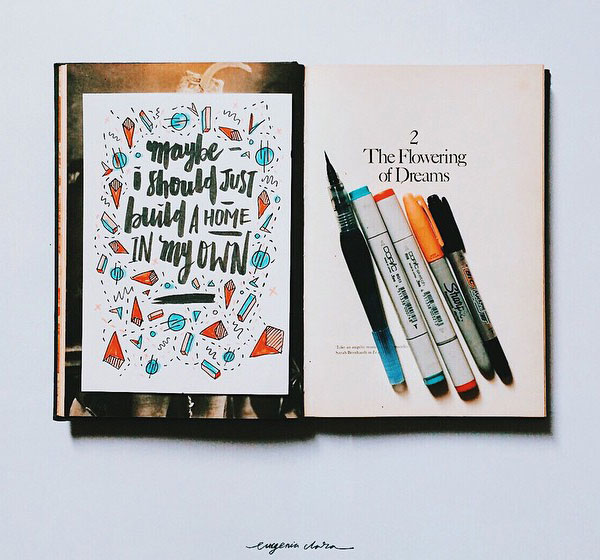 maybe –
i should JUST
build A HOME
IN my OWN
2
The Flowering
of Dreams
copic
Sharpie
Sarah Bernhardt in
eugenia clara